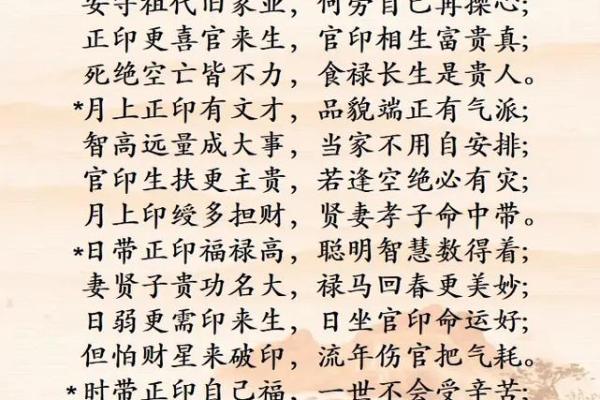 安守祖代旧家业，何劳自己再操心；
正印更喜官来生，官印相生富贵真；
死绝空亡皆不力，食禄长生是贵人。
*月上正印有文才，品貌端正有气派；
智高远量成大事，当家不用自安排；
官印生扶更主贵，若逢空绝必有灾；
月上印绶多担财，贤妻孝子命中带。
*日带正印福禄高，聪明智慧数得着；
妻贤子贵功名大，禄马回春更美妙；
日弱更需印来生，日坐官印命运好；
但怕财星来破印，流年伤官把气耗。
*时带正印自己福，一世不会受辛苦；